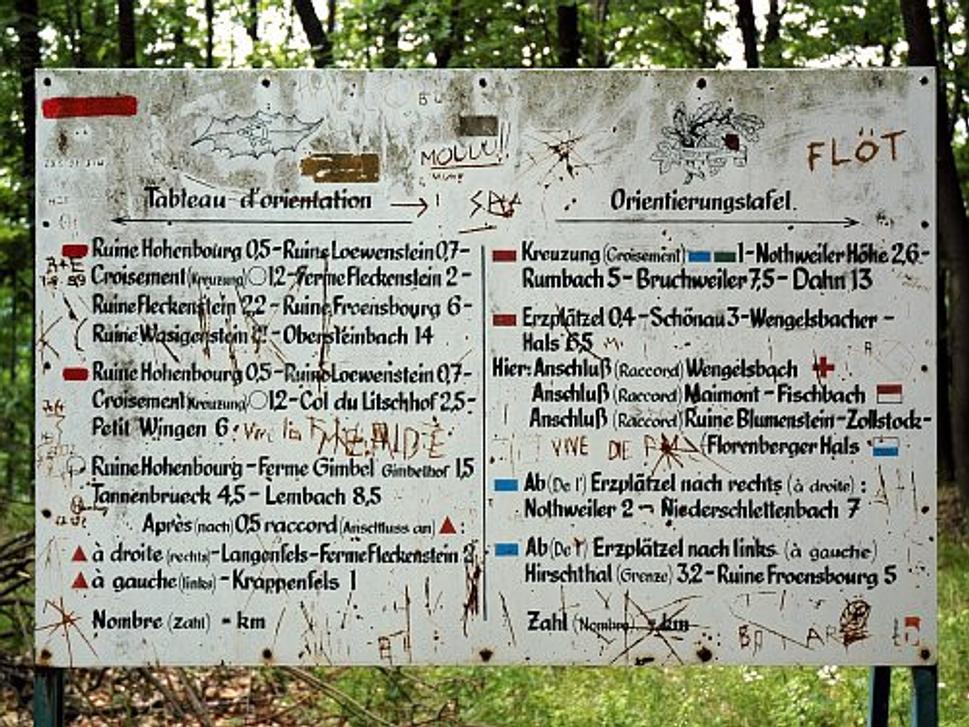 MOUUU!!
FLÖT
Tableau d'orientation
Ruine Hohenbourg 0,5 - Ruine Loewenstein 0,7 -
Croisement (Kreuzung) ○ 1,2 - Ferme Fleckenstein 2 -
Ruine Fleckenstein 2,2 - Ruine Froensbourg 6 -
Ruine Wasigenstein - Obersteinbach 14
Ruine Hohenbourg 0,5 - Ruine Loewenstein 0,7 -
Croisement (Kreuzung) ○ 1,2 - Col du Litschhof 2,5 -
Petit Wingen 6
Ruine Hohenbourg - Ferme Gimbel Gimbelhof 1,5
Tannenbrueck 4,5 - Lembach 8,5
Après (nach) 0,5 raccord (Anschluss an) ▲ :
▲ à droite (rechts) - Langenfels - Ferme Fleckenstein 2
▲ à gauche (links) - Krappenfels 1
Nombre (Zahl) - km
Orientierungstafel.
Kreuzung (Croisement) 1 - Nothweiler Höhe 2,6 -
Rumbach 5 - Bruchweiler 7,5 - Dahn 13
Erzplätzel 0,4 - Schönau 3 - Wengelsbacher -
Hals 6,5
Hier: Anschluß (Raccord) Wengelsbach
Anschluß (Raccord) Maimont - Fischbach
Anschluß (Raccord) Ruine Blumenstein - Zollstock -
VIVE DIE
Florenberger Hals
Ab (De l') Erzplätzel nach rechts (à droite) :
Nothweiler 2 - Niederschlettenbach 7
Ab (De l') Erzplätzel nach links (à gauche)
Hirschthal (Grenze) 3,2 - Ruine Froensbourg 5
Zahl (Nombre) - km